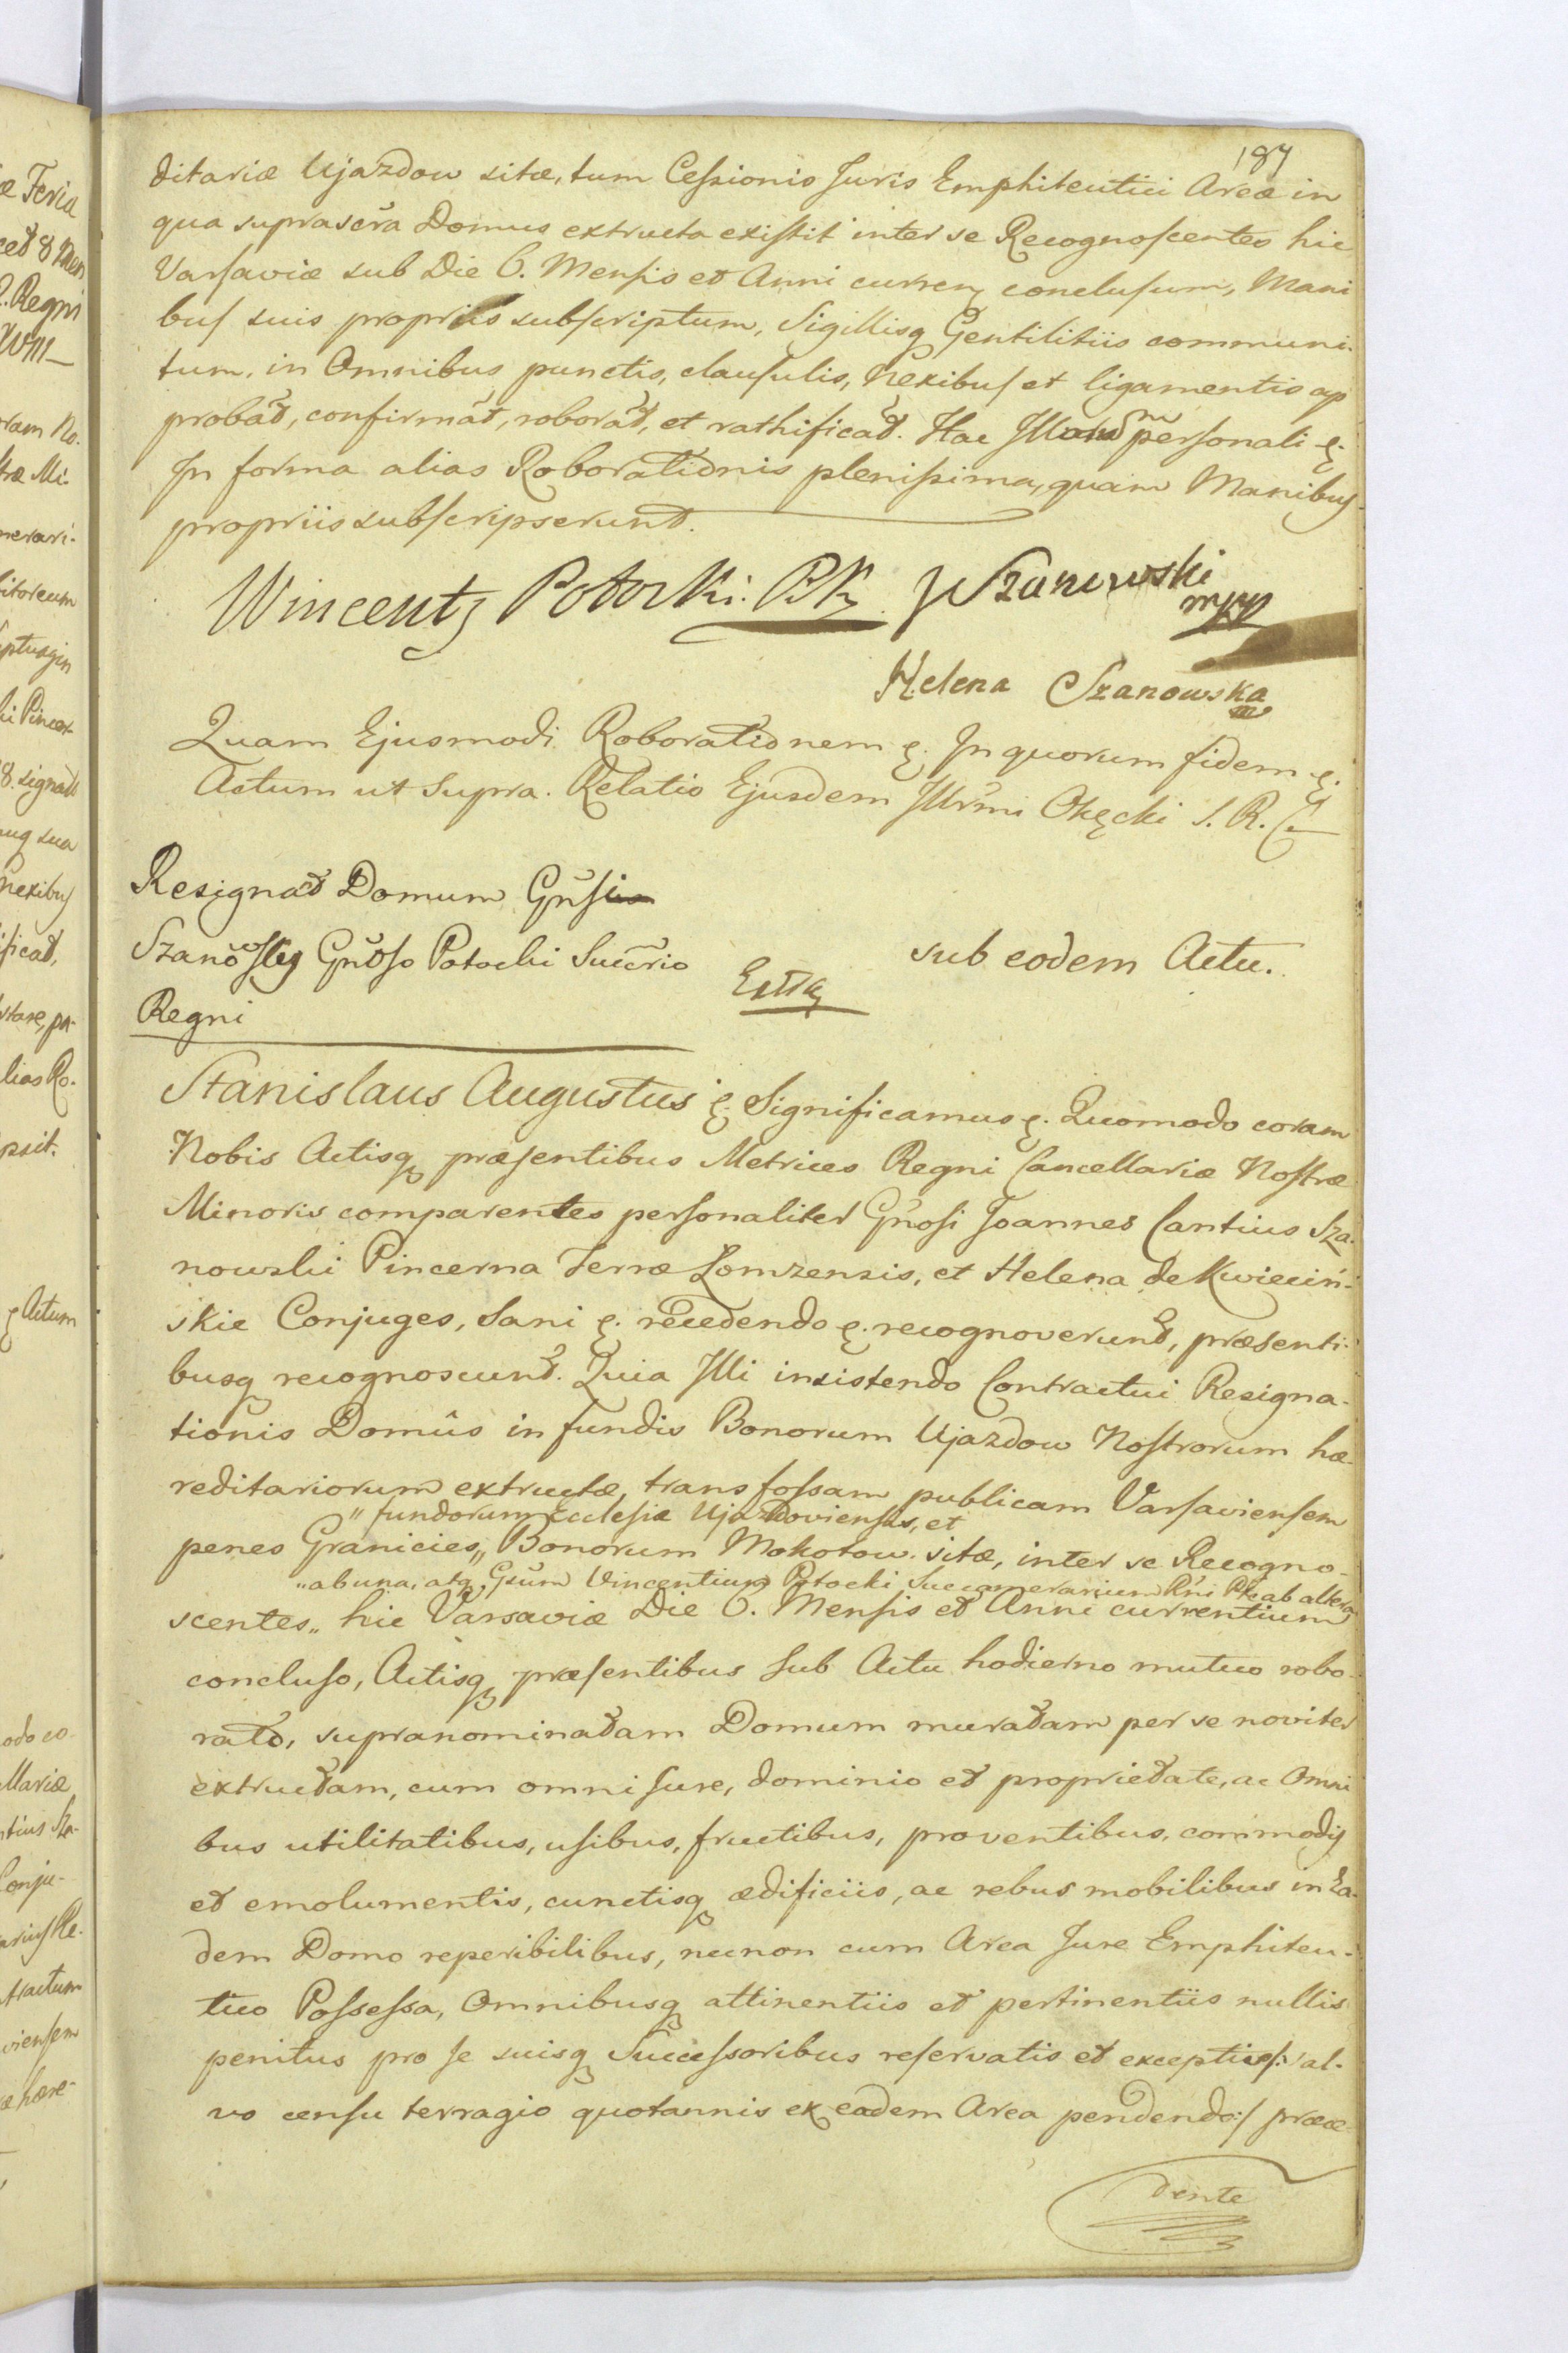 187
ditariæ Ujazdow sitæ, tum Cessionis Juris Emphiteutici Areæ in
qua suprascr̃a Domus extructa existit inter se Recognoscentes hic
Varsaviæ sub Die 6. Mensis et Anni curren conclusum, Mani
bus suis propriis subscriptum, Sigillisq Gentilitiis communi-
tum, in Omnibus punctis, clausulis, Nexibus et ligamentis ap
probat, confirmat, roborat, et rathificat. Hac personali &.
In forma alias Roborationis plenissima, quam Manibus
propriis subscripserunt.
Wincenty Potocki. PK JSzanowski
mpp
Helena Szanowska
Quam Ejusmodi Roborationem &. In quorum fidem &.
Actum ut Supra. Relatio Ejusdem Illr̃mi Okęcki S. R. C
Resignat Domum Gñsi
Szanowscy Gñoso Potocki Succrio
Regni
sub eodem Actu.
Stanislaus Augustus &. Significamus &. Quomodo coram
Nobis Actisq præsentibus Metrices Regni Cancellariæ Nostræ
Minoris comparentes personaliter Gñosi Joannes Cantius Sza-
nowski Pincerna Terræ Lomzensis, et Helena de Kwieciń-
skie Conjuges, Sani &. recedendo &. recognoverunt, præsenti-
busq recognoscunt. Quia Illi insistendo Contractui Resigna-
tionis Domûs in fundis Bonorum Ujazdow Nostrorum hæ-
reditariorum extructæ, trans fossam publicam Varsaviensem
" fundorum Ecclesiæ Ujazdoviensis, et
penes Granicies,, Bonorum Mokotow sitæ, inter se Recogno-
"ab una, atq Gsũm Vincentium Potocki Succamerarium Rñi Ptẽ ab altera
scentes,, hic Varsaviæ Die 6. Mensis et Anni currentium
concluso, Actisq præsentibus sub Actu hodierno mutuo robo-
rato, supranominatam Domum muratam per se noviter
extructam, cum omni Jure, dominio et proprietate, ac Omni
bus utilitatibus, usibus, fructibus, proventibus, commodis
et emolumentis, cunctisq ædificiis, ac rebus mobilibus in Ea-
dem Domo reperibilibus, necnon cum Area Jure Emphiteu-
tico Possessa, Omnibusq attinentiis et pertinentiis nullis
penitus pro se suisq Successoribus reservatis et exceptis /:sal-
vo censu terragio quotannis ex eadem Area pendendo:/ præce-
dente